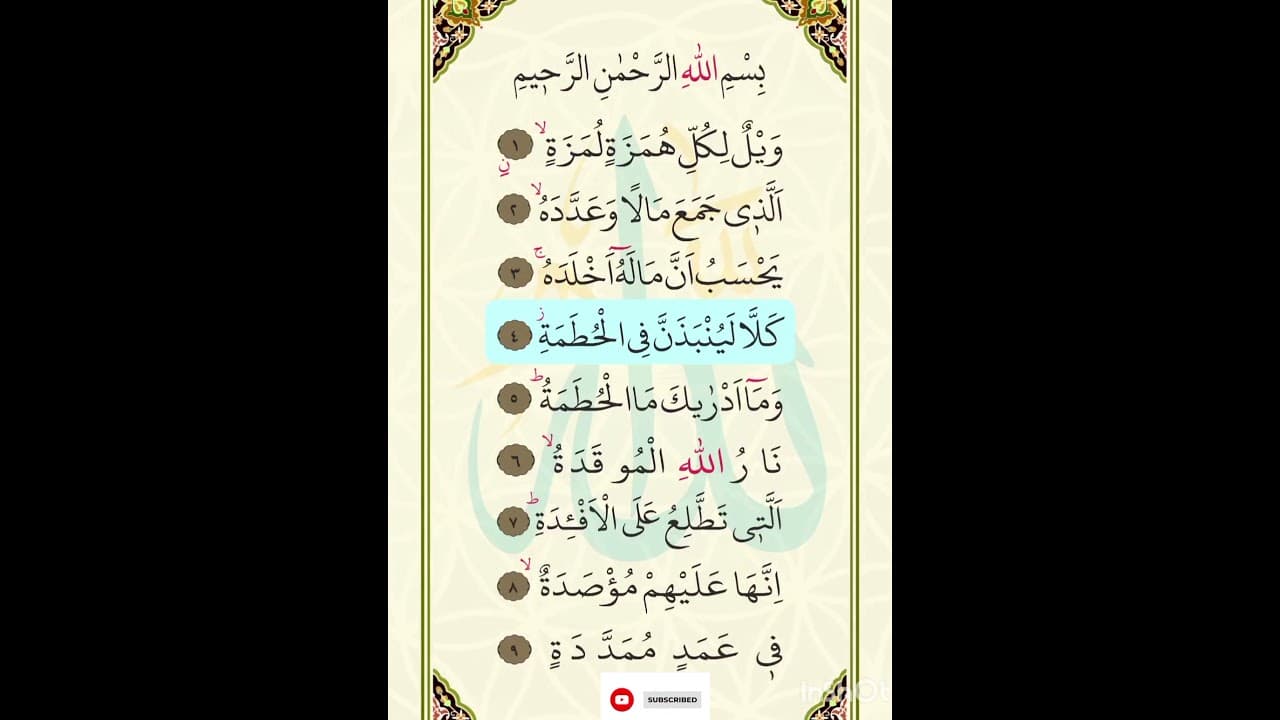 بِسْمِ اللّٰهِ الرَّحْمٰنِ الرَّحٖيمِ
وَيْلٌ لِكُلِّ هُمَزَةٍ لُمَزَةٍ ۙ ١
نِ
اَلَّذٖى جَمَعَ مَالًا وَعَدَّدَهُ ۙ ٢
يَحْسَبُ اَنَّ مَالَهُٓ اَخْلَدَهُ ۚ ٣
كَلَّا لَيُنْبَذَنَّ فِى الْحُطَمَةِ ز ٤
وَمَٓا اَدْرٰيكَ مَا الْحُطَمَةُ ط ٥
نَارُ اللّٰهِ الْمُوقَدَةُ ۙ ٦
اَلَّتٖى تَطَّلِعُ عَلَى الْاَفْـِٔدَةِ ط ٧
اِنَّهَا عَلَيْهِمْ مُؤْصَدَةٌ ۙ ٨
فٖى عَمَدٍ مُمَدَّدَةٍ ٩
SUBSCRIBED